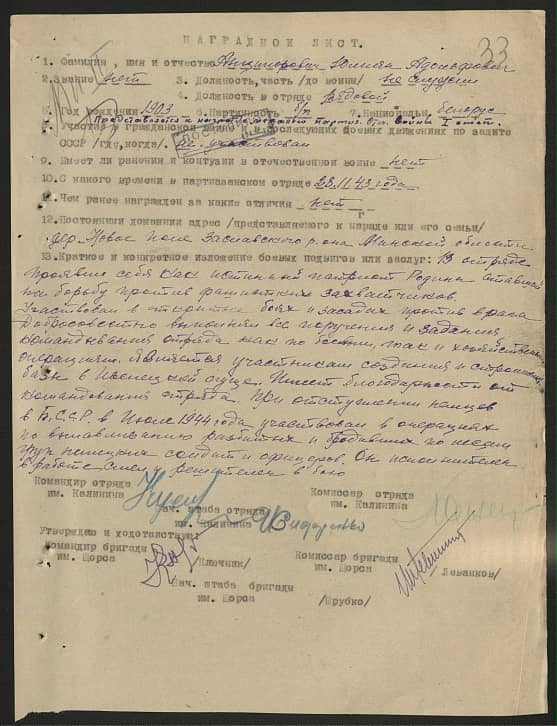 33
НАГРАДНОЙ ЛИСТ.
1. Фамилия, имя и отчество Анципорович Адольфович
2. Звание нет 3. Должность, часть /до войны/ не служил
4. Должность в отряде рядовой
5. Год рождения 1903 6. Партийность б/п 7. Национальн. белорус
Представляется к награждению медалью Партиз. Отеч. Войны I степ.
8. Участие в гражданской войне и последующих боевых движениях по защите
СССР /где, когда/. не участвовал
9. Имеет ли ранения и контузии в отечественной войне нет
10. С какого времени в партизанском отряде 28.11.43 года
11. Чем ранее награжден за какие отличия нет
г
12. Постоянный домашний адрес /представляемого к награде или его семьи/
дер. Новое Поле Заславского р-она Минской области
13. Краткое и конкретное изложение боевых подвигов или заслуг: В отряде
проявил себя как истинный патриот Родины ставший
на борьбу против фашистких захватчиков.
Участвовал в открытых боях и засадах против врага
Добросовестно выполнял все поручения и задания
командывания отряда как по боевым, так и хозяйственным
операциям. Является участником создания и строительства
базы в Ивенецкой пуще. Имеет благодарности от
командования отряда. При отступлении немцев
в Б.С.С.Р. в Июле 1944 года участвовал в операциях
по вылавливанию разбитых и бродивших по лесам
груп немецких солдат и офицеров. Он исполнителен
в работе смел и решителен в бою
Командир отряда Комиссар отряда
им. Калинина им. Калинина
Нач. штаба отряда
им. Калинина
Утверждаю и ходотайствую:
Командир бригады Комиссар бригады
им. Щорса /Ключник/ им. Щорса /Леванков/
Нач. штаба бригады
им. Щорса /Шрубко/